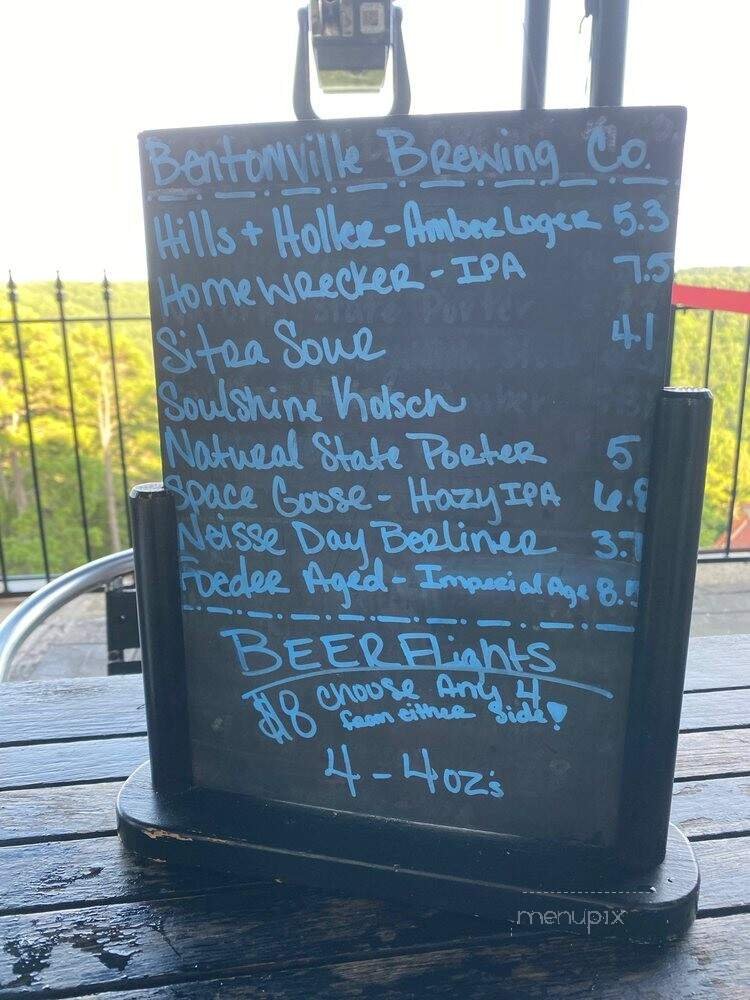 Bentonville Brewing Co.
Hills + Holler - Amber Lager 5.3
Homewrecker - IPA 7.5
Sitra Sour 41
Soulshine Kolsch
Natural State Porter 5
Space Goose - Hazy IPA 6.8
Neisse Day Berliner 3.7
Foeder Aged - Imperial Age 8.5
BEER Flights
$8 choose Any 4
from either Side!
4 - 4oz's
menupix